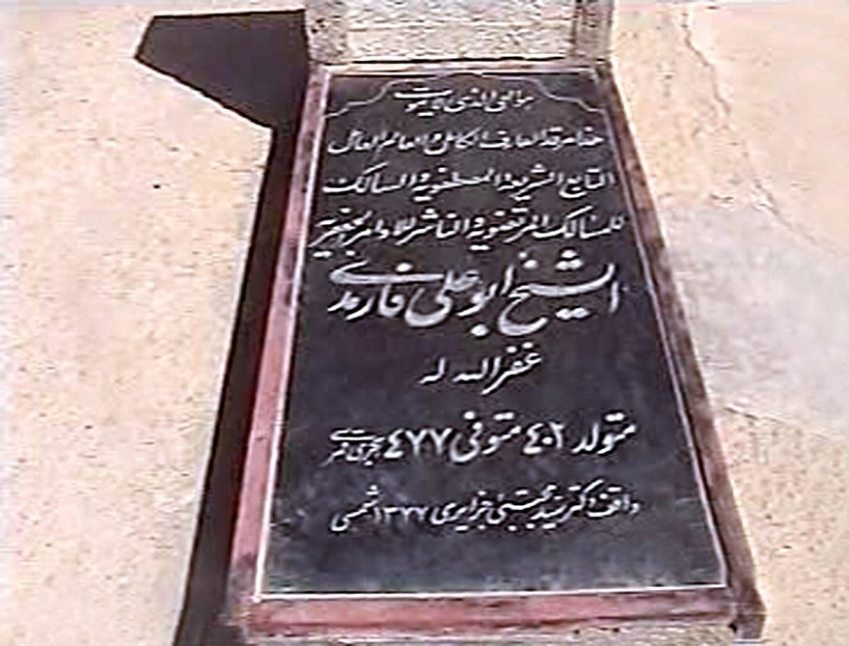 هو الحی الذی لا یموت
هذا مرقد العارف الکامل و العالم العامل
التابع الشریعه المصطفویه و السالک
للمسالک المرتضویه و الناشر للاوامر الجعفریه
الشیخ ابوعلی فارمدی
غفرالله له
متولد ۴۰۲ متوفی ۴۷۷ هجری قمری
واقف دکتر سید مجتبی جزایری ۱۳۷۷ شمسی